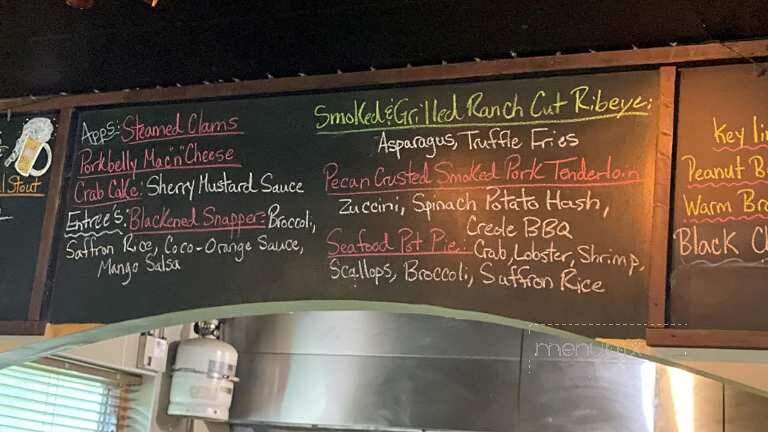 l Stout
Apps: Steamed Clams
Porkbelly Mac"n"Cheese
Crab Cake: Sherry Mustard Sauce
Entree's: Blackened Snapper: Broccoli,
Saffron Rice, Coco-Orange Sauce,
Mango Salsa
Smoked & Grilled Ranch Cut Ribeye:
Asparagus, Truffle Fries
Pecan Crusted Smoked Pork Tenderloin
Zuccini, Spinach Potato Hash,
Creole BBQ
Seafood Pot Pie: Crab, Lobster, Shrimp,
Scallops, Broccoli, Saffron Rice
Key li
Peanut B
Warm Bro
Black C
menupix